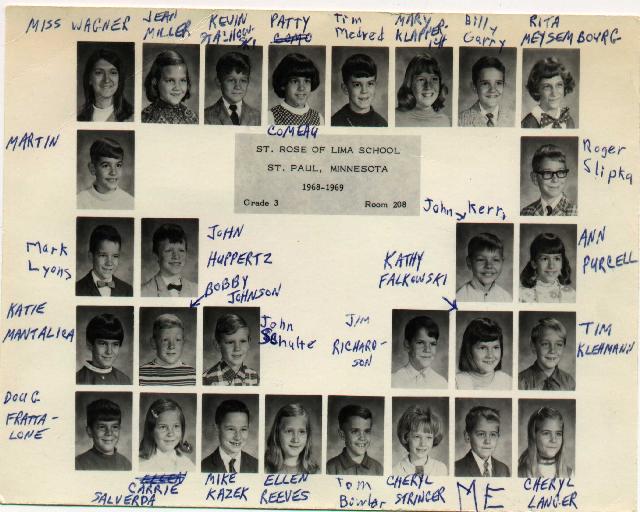 MISS WAGNER
JEAN
MILLER
KEVIN
PATTY
COMO
Tim
Medred
MARY
Billy
Garry
RITA
MEYSEMBOURG
COMEAU
MARTIN
ST. ROSE OF LIMA SCHOOL
ST. PAUL, MINNESOTA
1968-1969
Grade 3 Room 208
Roger
Slipka
John Kerr
Mark
Lyons
JOHN
HUPPERTZ
BOBBY
JOHNSON
KATHY
FALKOWSKI
ANN
PURCELL
KATIE
MANTALICA
John
Schulte
JIM
RICHARD-
SON
TIM
KLEHMANN
DOUG
FRATTA-
LONE
ELLEN
CARRIE
SALVERDA
MIKE
KAZEK
ELLEN
REEVES
Tom
Bowler
CHERYL
STRINGER
ME
CHERYL
LANGER